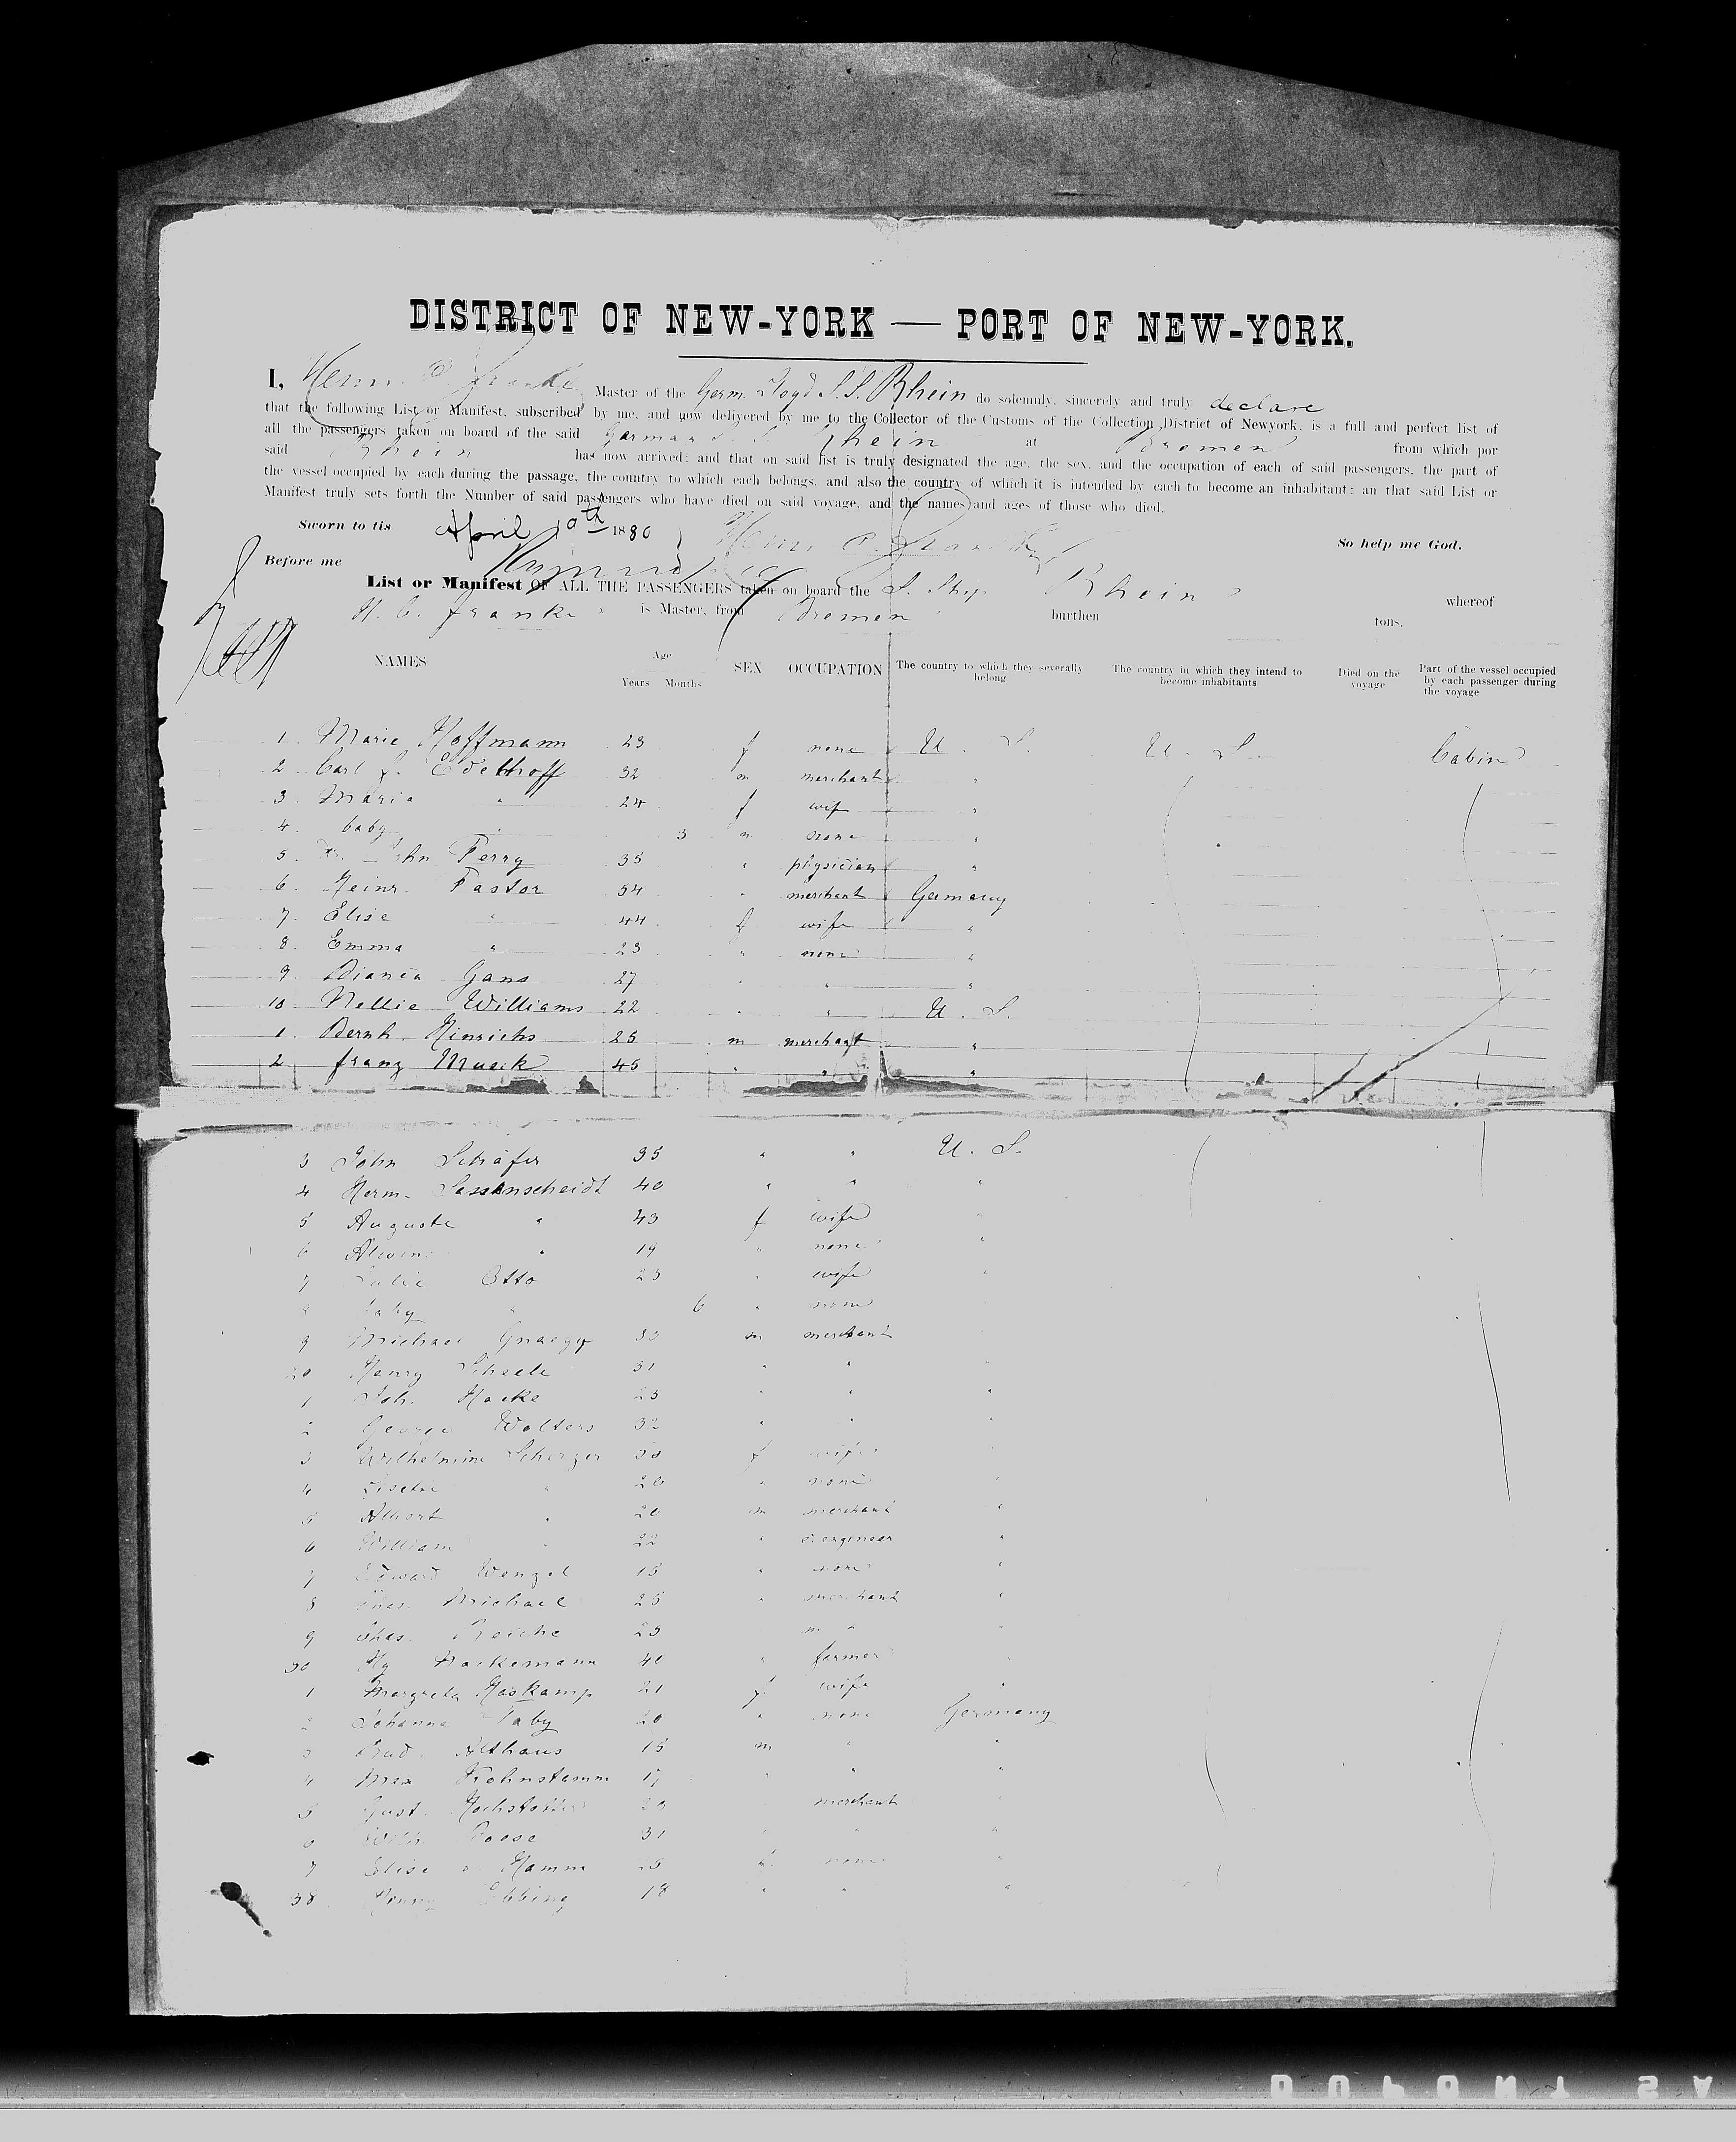 DISTRICT OF NEW-YORK — PORT OF NEW-YORK.
I, Master of the Germ. Lloyd S.S. Rhein do solemnly, sincerely and truly declare
that the following List or Manifest, subscribed by me, and now delivered by me to the Collector of the Customs of the Collection District of Newyork, is a full and perfect list of
all the passengers taken on board of the said German S. S. Rhein at Bremen from which por
said Rhein has now arrived; and that on said list is truly designated the age, the sex, and the occupation of each of said passengers, the part of
the vessel occupied by each during the passage, the country to which each belongs, and also the country of which it is intended by each to become an inhabitant; an that said List or
Manifest truly sets forth the Number of said passengers who have died on said voyage, and the names and ages of those who died.
Sworn to tis April 10th 1880 So help me God.
Before me
List or Manifest OF ALL THE PASSENGERS taken on board the S. Ship Rhein whereof
H. C. Franke is Master, from Bremen burthen tons.
NAMES Age Years Months SEX OCCUPATION The country to which they severally belong The country in which they intend to become inhabitants Died on the voyage Part of the vessel occupied by each passenger during the voyage
1. Marie Hoffmann 23 f none U. S. U. S. Cabin
2. Carl F. Edelhoff 32 m merchant "
3. Maria " 24 f wife "
4. baby " 3 m none "
5. John Perry 35 " physician "
6. Heinr. Pastor 54 " merchant Germany
7. Elise " 44 f wife "
8. Emma " 23 " none "
9. Gans 27 " " "
10. Nellie Williams 22 " " U. S.
1. Bernh. Hinrichs 25 m merchant "
2 Franz Mueck 45 " " "
3 John Schäfer 35 " " U. S.
4 Herm. Sassenscheidt 40 " " "
5 Auguste " 43 f wife "
6 Alwine " 19 " none "
7 Julie Otto 23 " wife "
8 baby " 6 " none
9 Michael Gnaegy 30 m merchant
20 Henry Scheele 31 " "
1 Joh. Hacke 23 " " "
2 George Wolters 32 " "
3 Wilhelmine Scherzer 50 f wife
4 " 20 " none "
5 Albert " 20 m merchant "
6 William " 22 " engineer "
7 Edward Wenzel 15 " none "
8 Michael 25 " merchant "
9 Chas. Reiche 25 "
30 Hy Hackemann 40 " farmer
1 Margreta Haskamp 21 f wife "
2 Johanna Taby 20 " none Germany
3 Rud. Althaus 15 m " "
4 Max Kohnstamm 17 " " "
5 Gust. Hochstetter 20 merchant "
6 Wilh. Boese 31 " " "
7 Elise Hamm 25 f none "
38 Ebbing 18 " " "